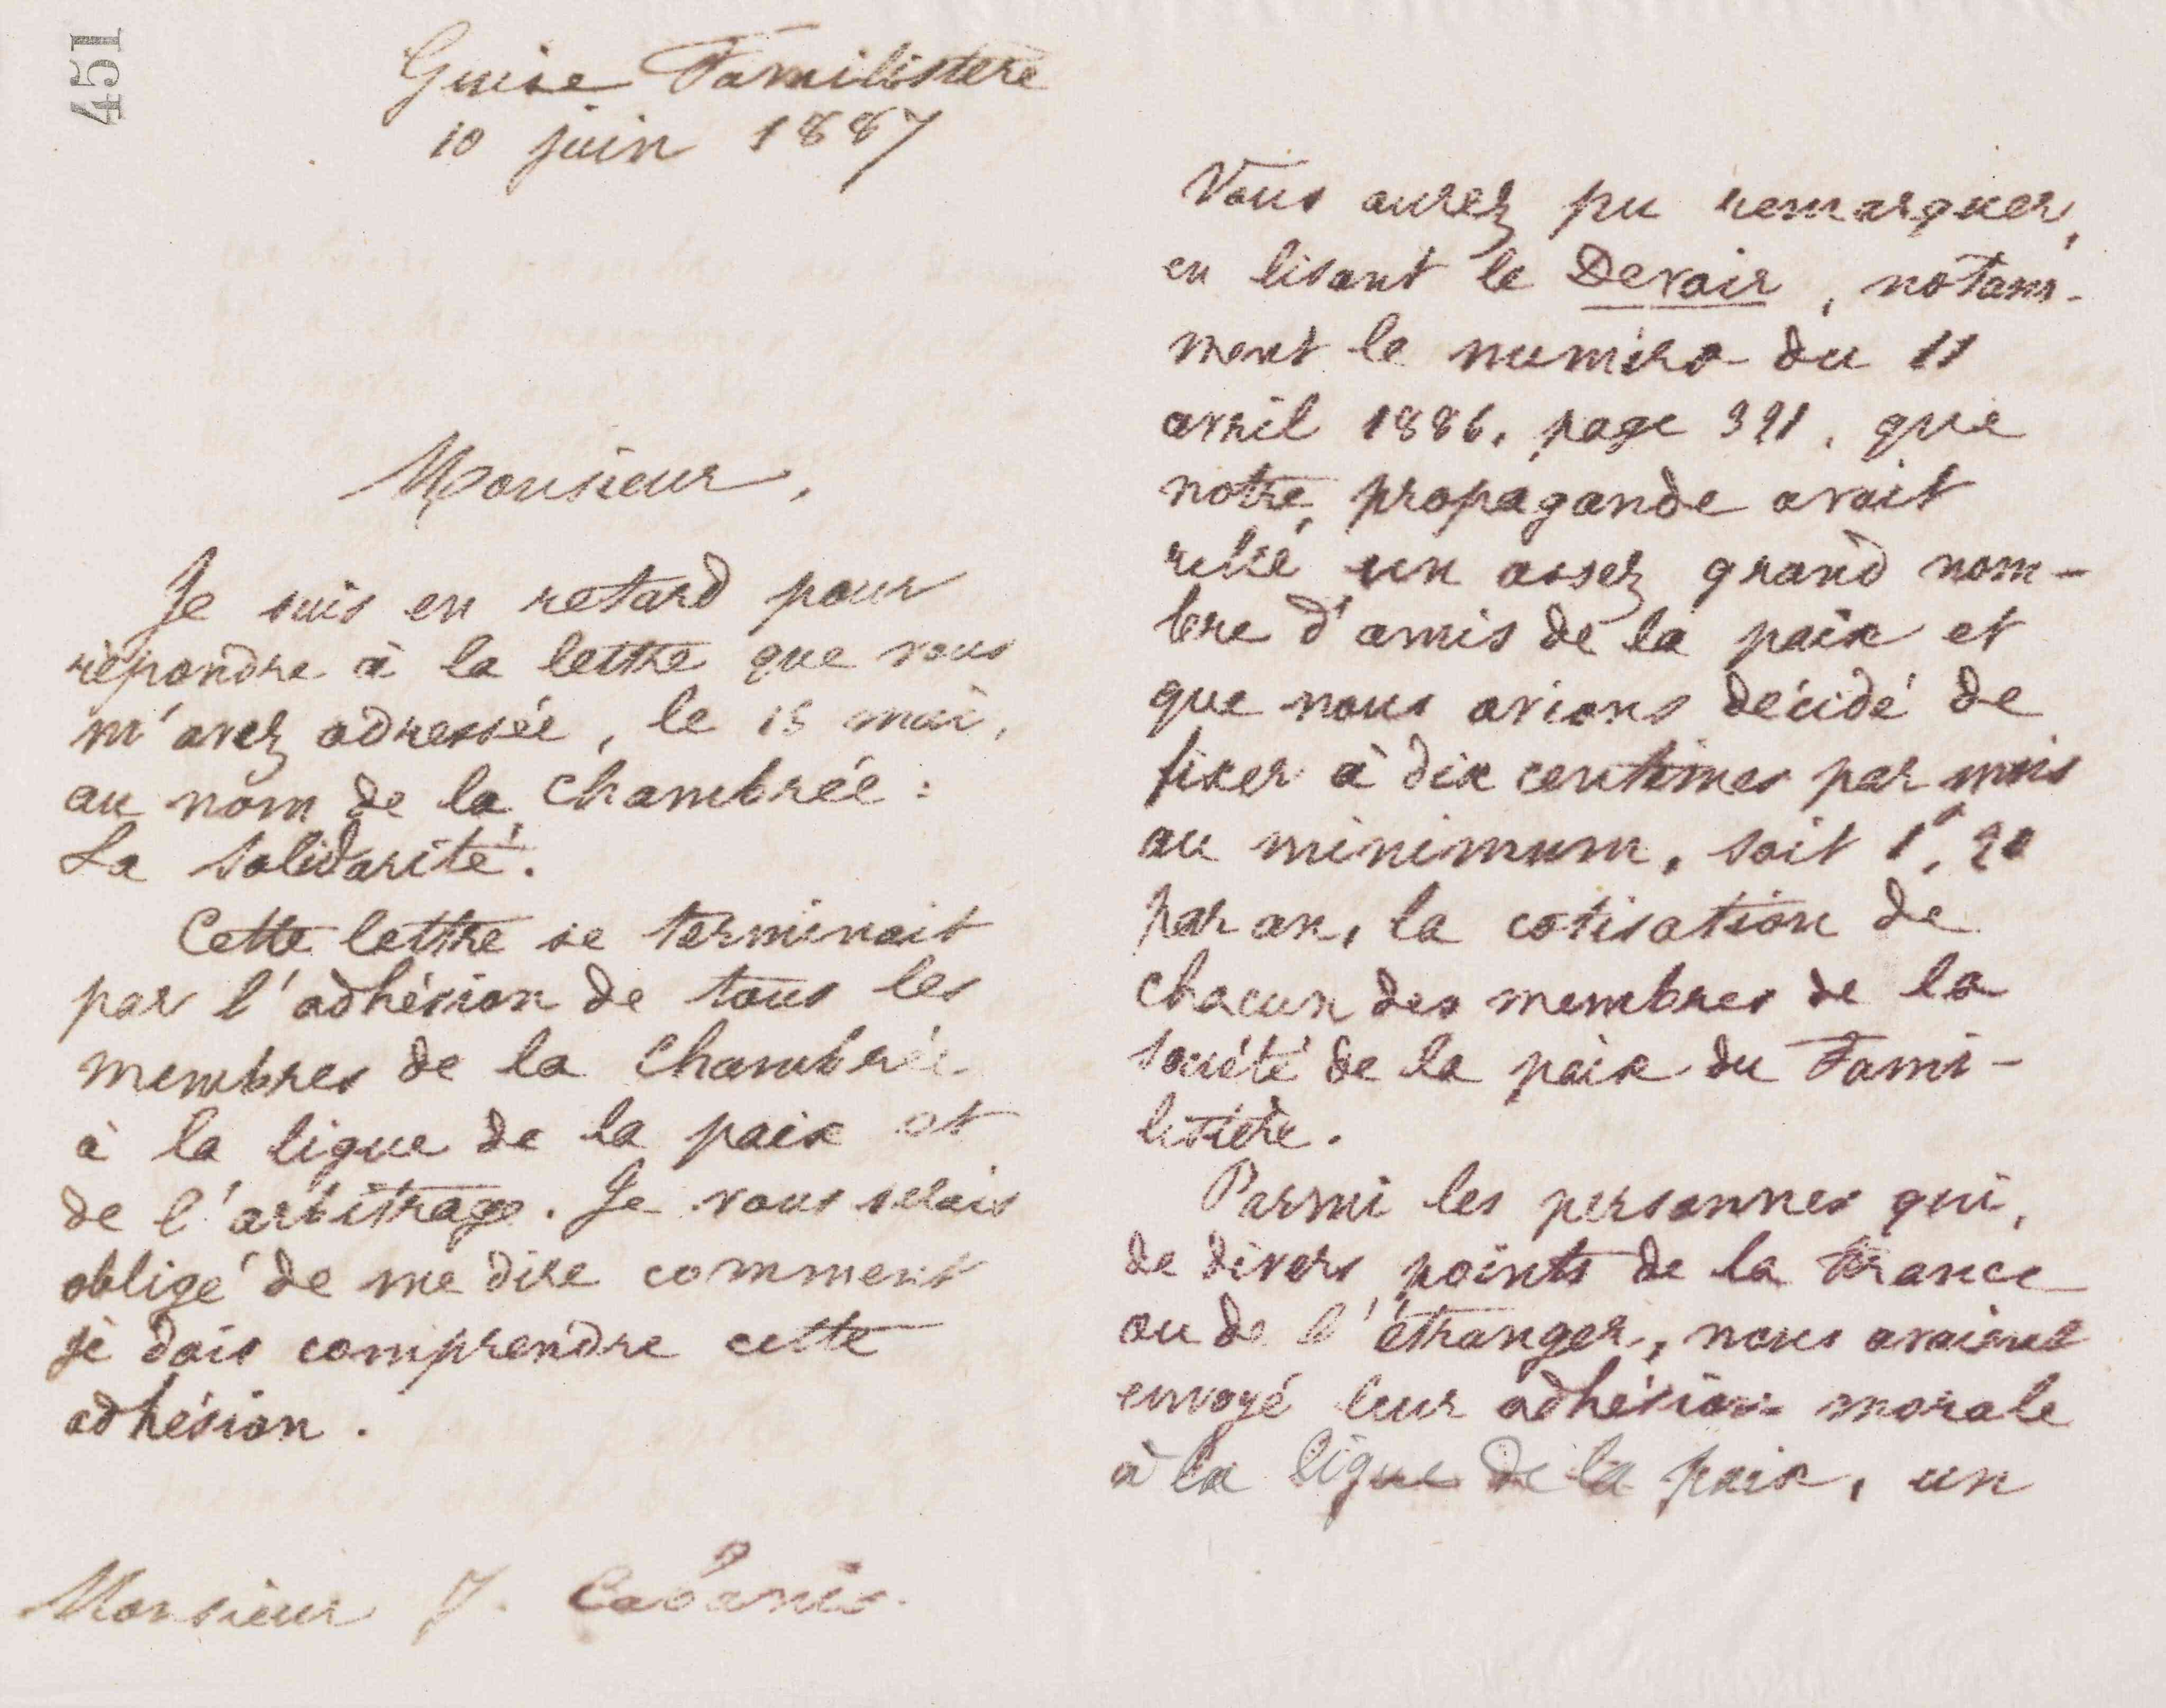 451
Guise Familistère
10 juin 1887
Monsieur,
Je suis en retard pour
répondre à la lettre que vous
m'avez adressée, le 15 mai,
au nom de la Chambrée :
La Solidarité.
Cette lettre se terminait
par l'adhésion de tous les
membres de la Chambrée
à la ligue de la paix et
de l'arbitrage. Je vous serais
obligé de me dire comment
je dois comprendre cette
adhésion.
Monsieur J. Cabanis.
Vous aurez pu remarquer,
en lisant le Devoir, notam-
ment le numéro du 11
avril 1886, page 321, que
notre propagande avait
relié un assez grand nom-
bre d'amis de la paix et
que nous avions décidé de
fixer à dix centimes par mois
au minimum, soit 1f, 20
par an, la cotisation de
chacun des membres de la
société de la paix du Fami-
listère.
Parmi les personnes qui,
de divers points de la France
ou de l'étranger, nous avaient
envoyé leur adhésion morale
à la ligue de la paix, un